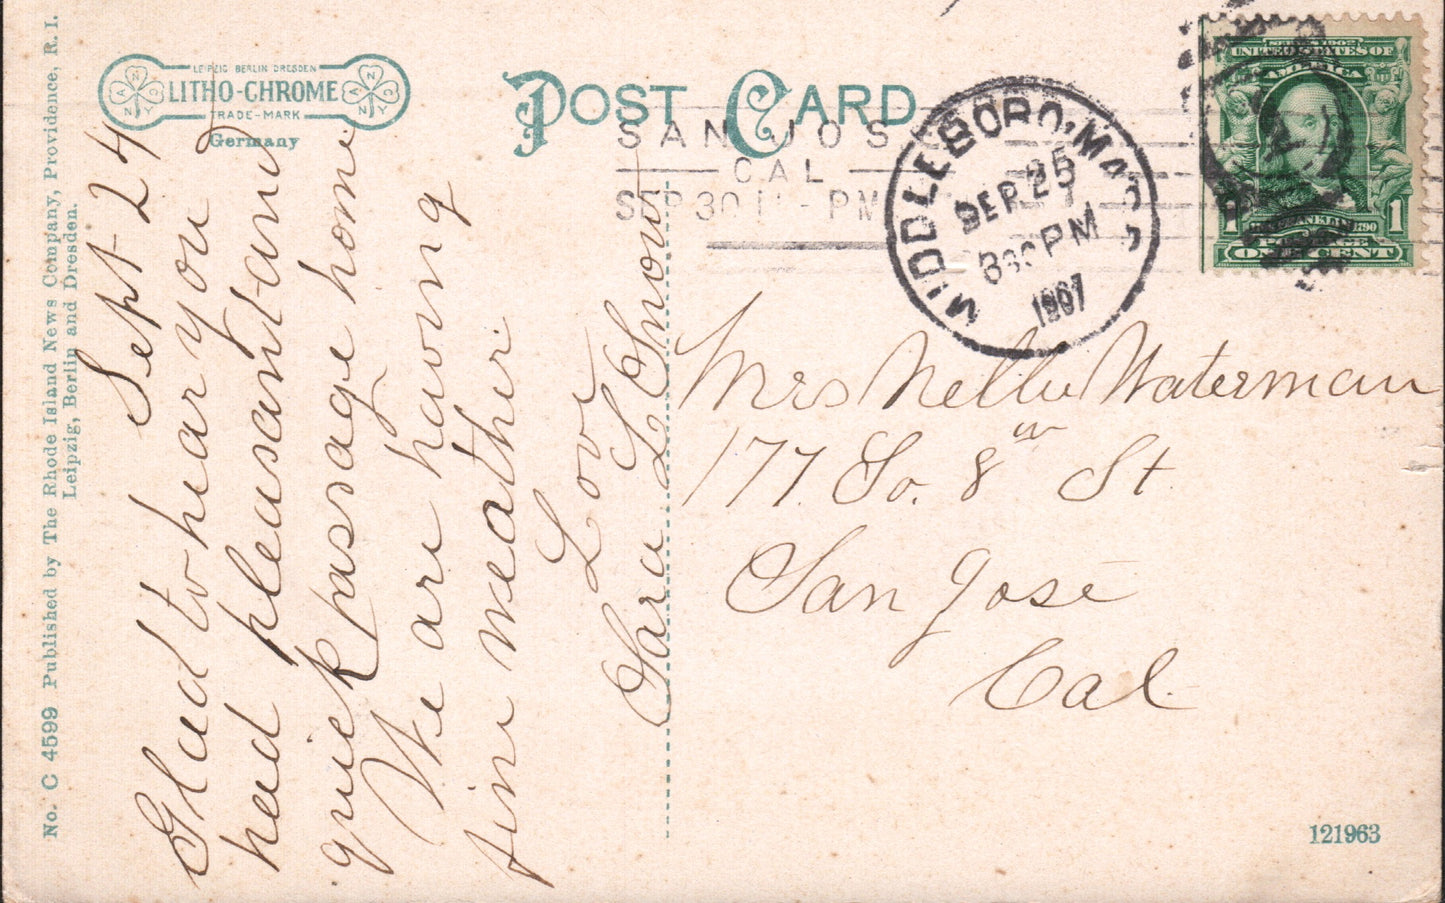 No. C 4599 Published by The Rhode Island News Company, Providence, R. I.
Leipzig, Berlin and Dresden.
LEIPZIG BERLIN DRESDEN
LITHO-CHROME
TRADE-MARK
Germany
POST CARD
SAN JOSE
CAL
SEP 30 11 - PM
MIDDLEBORO, MASS
SEP 25
830 PM
1907
SERIES 1902
UNITED STATES OF
AMERICA
FRANKLIN 1790
1 1
POSTAGE
ONE CENT
Sept 24
Glad to hear you
had pleasant and
quick passage home
We are having
fine weather.
Love
Sara L Snow
Mrs Nellie Waterman
177. So. 8th St
San José
Cal.
121963